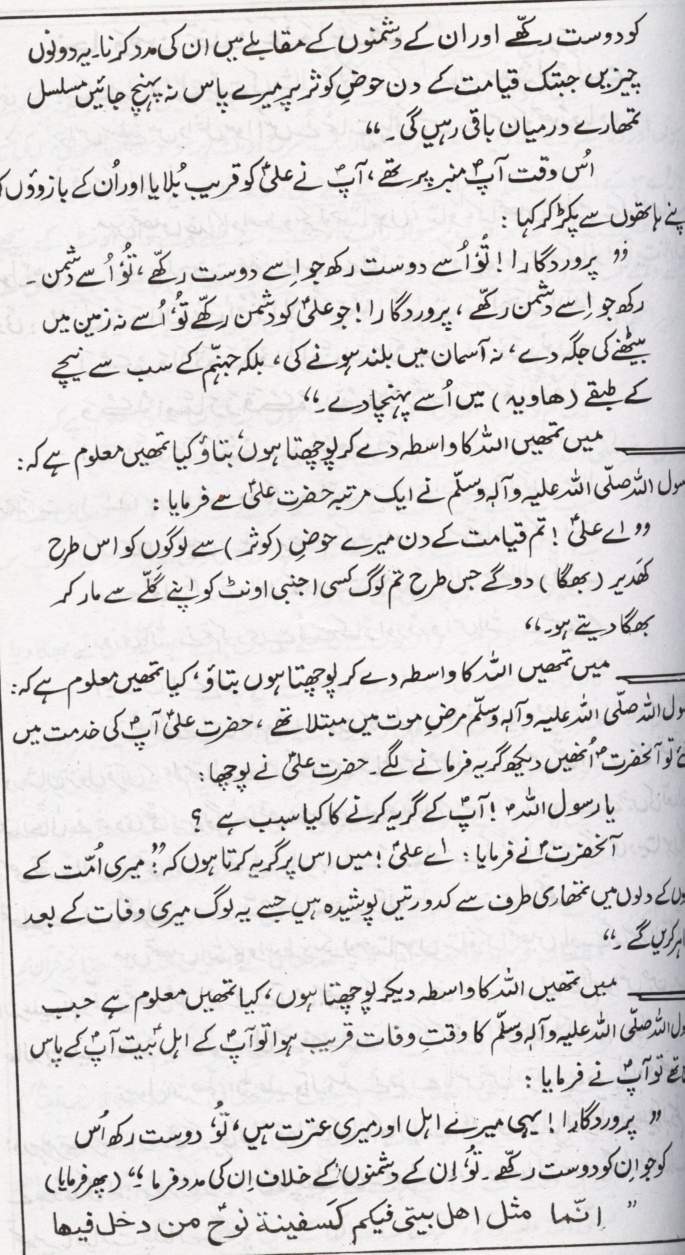 کو دوست رکھّے اور ان کے دشمنوں کے مقابلے میں ان کی مدد کرنا۔ یہ دونوں
چیزیں جبتک قیامت کے دن حوضِ کوثر پر میرے پاس نہ پہنچ جائیں مسلسل
تمھارے درمیان باقی رہیں گی۔"
اُس وقت آپؐ منبر پر تھے، آپؐ نے علیؑ کو قریب بُلایا اور اُن کے بازوؤں کو
پنے ہاتھوں سے پکڑ کر کہا:
" پروردگارا! تُو اُسے دوست رکھ جو اِسے دوست رکھّے، تُو اُسے دشمن۔
رکھ جو اِسے دشمن رکھّے، پروردگارا! جو علیؑ کو دشمن رکھّے تُو اُسے نہ زمین میں
بیٹھنے کی جگہ دے، نہ آسمان میں بلند ہونے کی، بلکہ جہنّم کے سب سے نیچے
کے طبقے (ھاویہ) میں اُسے پہنچا دے۔"
میں تمھیں اللہ کا واسطہ دے کر پوچھتا ہوں بتاؤ کیا تمھیں معلوم ہے کہ:
سول اللہ صلّی اللہ علیہ وآلہ وسلّم نے ایک مرتبہ حضرت علیؑ سے فرمایا:
" اے علیؑ! تم قیامت کے دن میرے حوضِ (کوثر) سے لوگوں کو اس طرح
کھدیر (بھگا) دو گے جس طرح تم لوگ کسی اجنبی اونٹ کو اپنے گلّے سے مار کر
بھگا دیتے ہو۔"
میں تمھیں اللہ کا واسطہ دے کر پوچھتا ہوں بتاؤ، کیا تمھیں معلوم ہے کہ:
ول اللہ صلّی اللہ علیہ وآلہ وسلّم مرضِ موت میں مبتلا تھے، حضرت علیؑ آپؐ کی خدمت میں
ئے تو آنحضرتؐ اُنھیں دیکھ گریہ فرمانے لگے۔ حضرت علیؑ نے پوچھا:
یا رسول اللہؐ! آپؐ کے گریہ کرنے کا کیا سبب ہے؟
آنحضرتؐ نے فرمایا: اے علیؑ! میں اس پر گریہ کرتا ہوں کہ" میری اُمّت کے
وں کے دلوں میں تمھاری طرف سے کدورتیں پوشیدہ ہیں جسے یہ لوگ میری وفات کے بعد
اہر کریں گے۔"
میں تمھیں اللہ کا واسطہ دیکر پوچھتا ہوں، کیا تمھیں معلوم ہے جب
ول اللہ صلّی اللہ علیہ وآلہ وسلّم کا وقتِ وفات قریب ہوا تو آپؐ کے اہل بیتؑ آپؐ کے پاس
تھے تو آپؐ نے فرمایا:
" پروردگارا! یہی میرے اہل اور میری عترت ہیں، تُو دوست رکھ اُس
کو جو ان کو دوست رکھّے۔ تُو اِن کے دشمنوں کے خلاف اِن کی مدد فرما۔" (پھر فرمایا)
" اِنّما مثل اهل بیتی فیکم کسفینة نوحٌ من دخل فیها